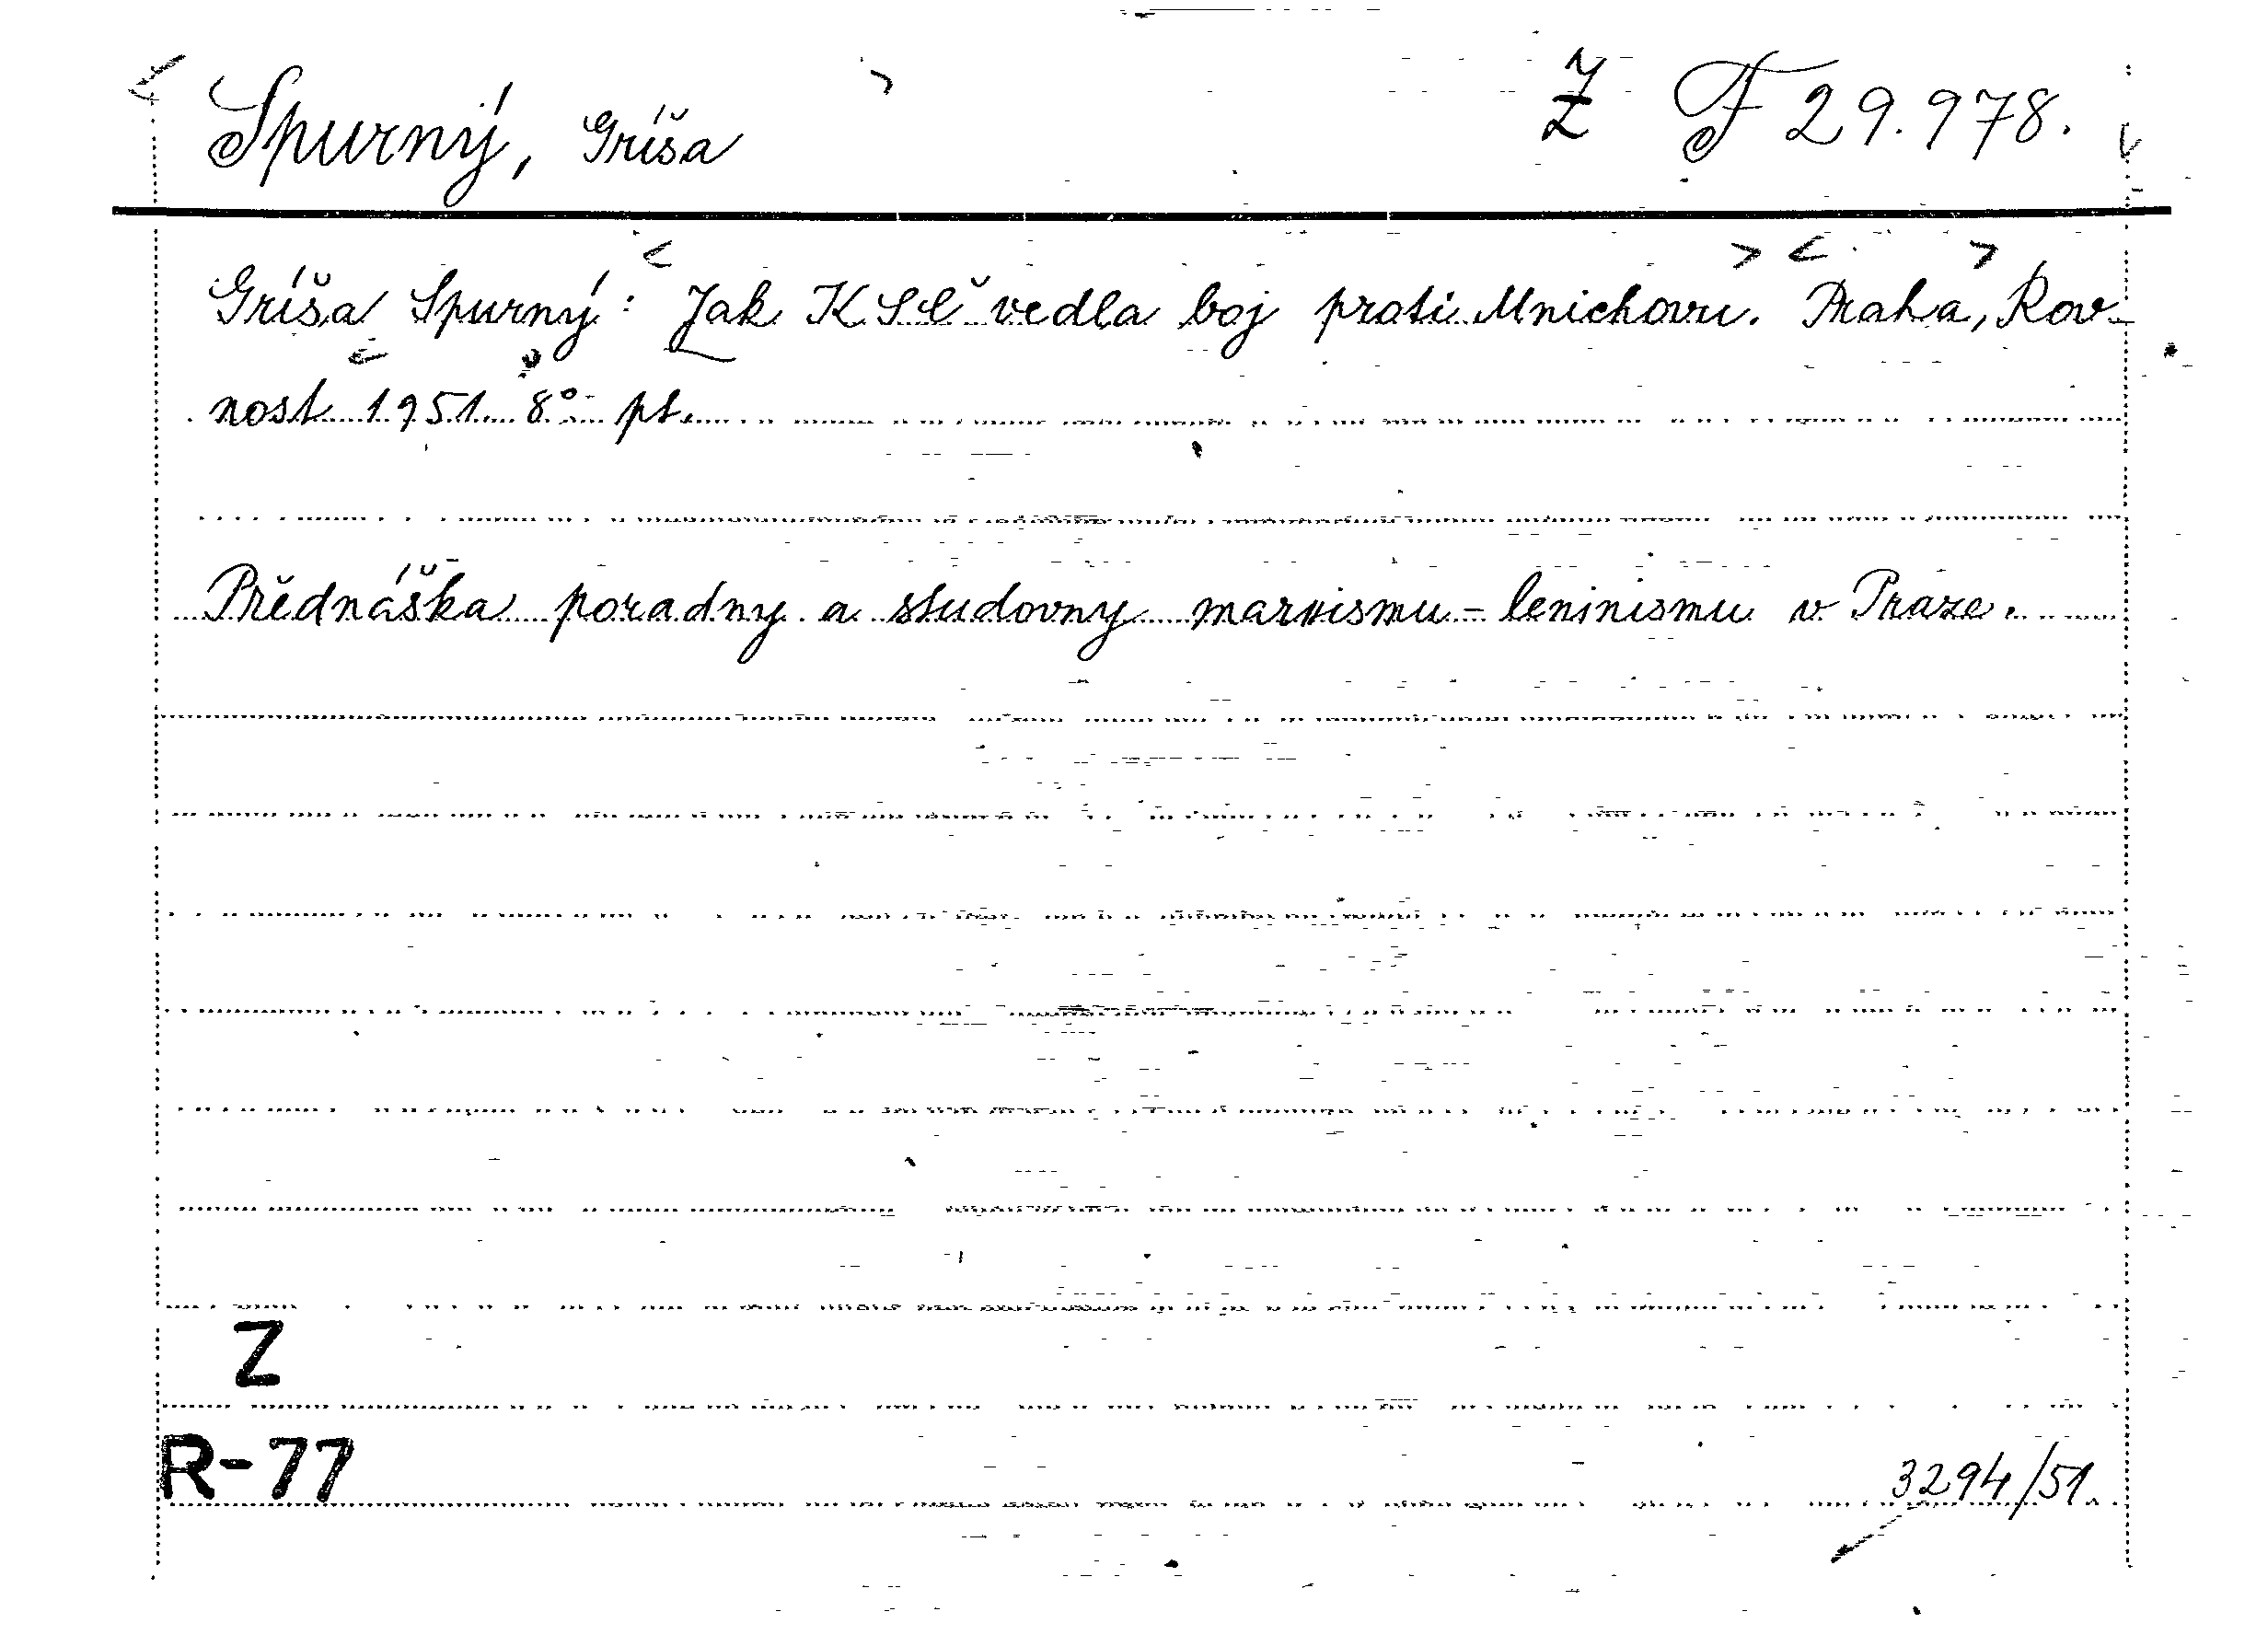 Spurný, Gríša Z F 29.978.
Gríša Spurný: Jak KSČ vedla boj proti Mnichovu. Praha, Rov-
nost 1951. 8° pt.
Přednáška poradny a studovny marxismu-leninismu v Praze.
Z
R-77
3294/51.